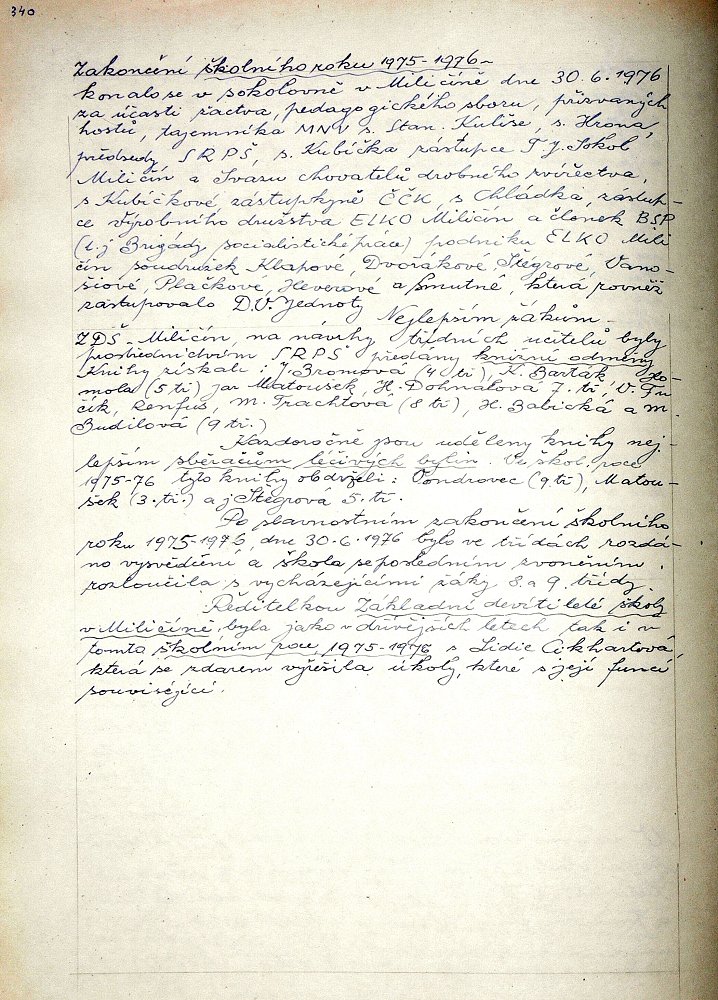 340
Zakončení školního roku 1975-1976 -
konalo se v sokolovně v Miličíně dne 30.6.1976
za účasti žactva, pedagogického sboru, přizvaných
hostů, tajemníka MNV s. Stan. Kuliše, s. Hrona,
předsedy SRPŠ, s. Kubíčka zástupce T.J. Sokol
Miličín a Svazu chovatelů drobného zvířectva,
s Kubíčkové zástupkyně ČČK, s Chládka, zástup-
ce Výrobního družstva ELKO Miličín a členek BSP
(t.j Brigády socialistické práce) podniku ELKO Mili
čín soudružek Klapové, Dvořákové, Štégrové, Vano-
šiové, Plačkové, Heverové a Smutné, která rovněž
zastupovalo D.V. Jednoty
Nejlepším žákům -
ZDŠ - Miličín, na návrhy třídních učitelů byly
prostřednictvím SRPŠ předány knižní odměny
Knihy získali: J. Bromová (4 tř), K. Barták,
mola (5 tř) jar Matoušek, H. Dohnalová 7. tř, V. Fu
čík, Renfus, M. Trachtová (8 tř), H. Babická a M.
Budilová (9 tř.)
Každoročně jsou uděleny knihy nej-
lepším sběračům léčivých bylin. Ve škol. roce
1975-76 tyto knihy obdrželi: Vondrovec (9 tř), Matou-
šek (3. tř.) a j Štégrová 5. tř.
Po slavnostním zakončení školního
roku 1975-1976, dne 30.6.1976 bylo ve třídách rozdá-
no vysvědčení a škola se posledním zvoněním
rozloučila s vycházejícími žáky 8. a 9. třídy.
Ředitelkou Základní devítileté školy
v Miličíně, byla jako v dřívějších letech tak i v
tomto školním roce, 1975-1976 s Lidie Cikhartová,
která se zdarem vyřešila úkoly, které s její funcí
souvisejicí.